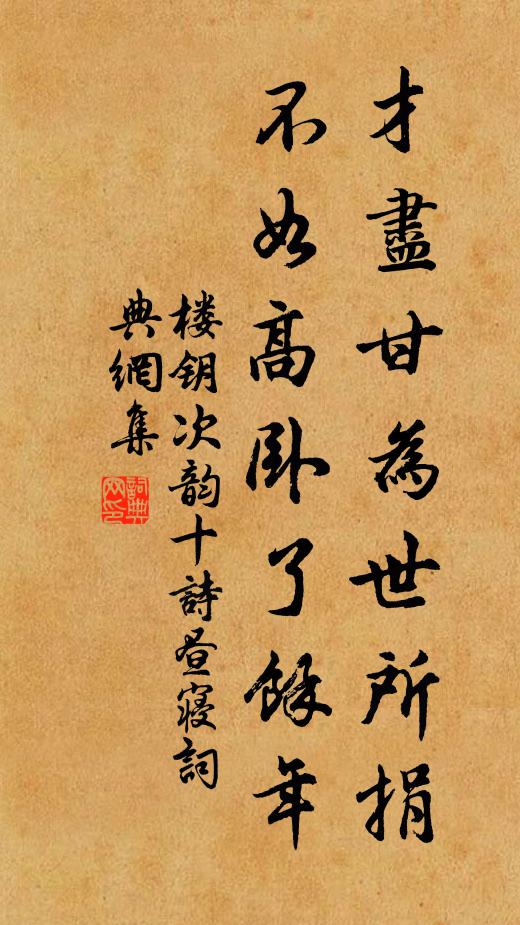 才盡甘為世所捐
不如高卧了餘年
楼钥次韵十詩昼寢詞
典網集
詞典
网印